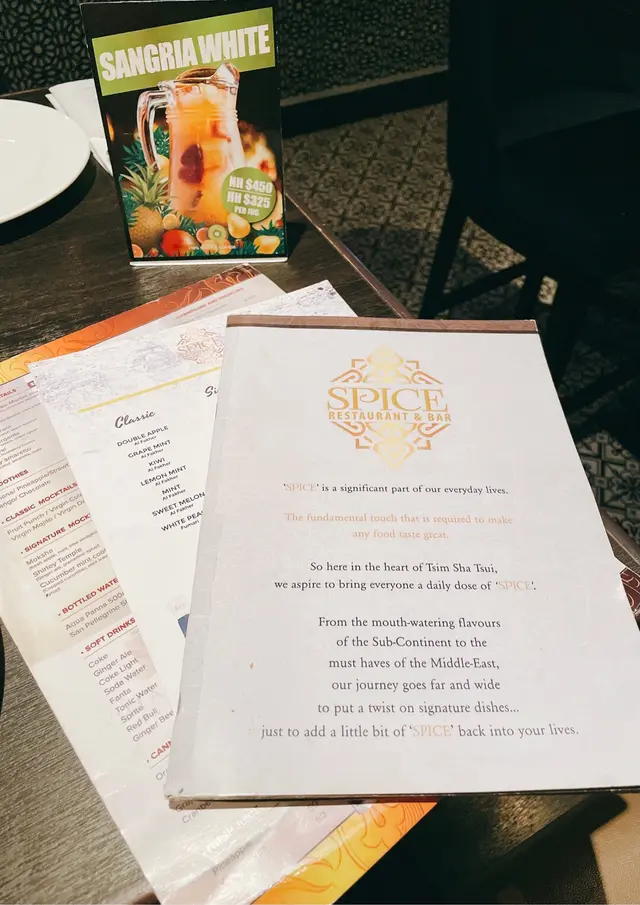 SANGRIA WHITE
NH $450
HH $325
PER JUG
SPICE
RESTAURANT & BAR
'SPICE' is a significant part of our everyday lives.
The fundamental touch that is required to make
any food taste great.
So here in the heart of Tsim Sha Tsui,
we aspire to bring everyone a daily dose of 'SPICE'.
From the mouth-watering flavours
of the Sub-Continent to the
must haves of the Middle-East,
our journey goes far and wide
to put a twist on signature dishes...
just to add a little bit of 'SPICE' back into your lives.
SPICE
Classic
DOUBLE APPLE
Al Fakher
GRAPE MINT
Al Fakher
KIWI
Al Fakher
LEMON MINT
Al Fakher
MINT
Al Fakher
SWEET MELON
Al Fakher
WHITE PEA
Fumari
• CLASSIC MOCKTAILS
Fruit Punch / Virgin
Virgin Mojito / Virgin
• SIGNATURE MOCK
Moksha
Shirley Temple
Cucumber mint cool
• BOTTLED WATE
Aqua Panna 500
San Pellegrino
• SOFT DRINKS
Coke
Ginger Ale
Coke Light
Soda Water
Fanta
Tonic Water
Sprite
Red Bull
Ginger Bee
• CANN